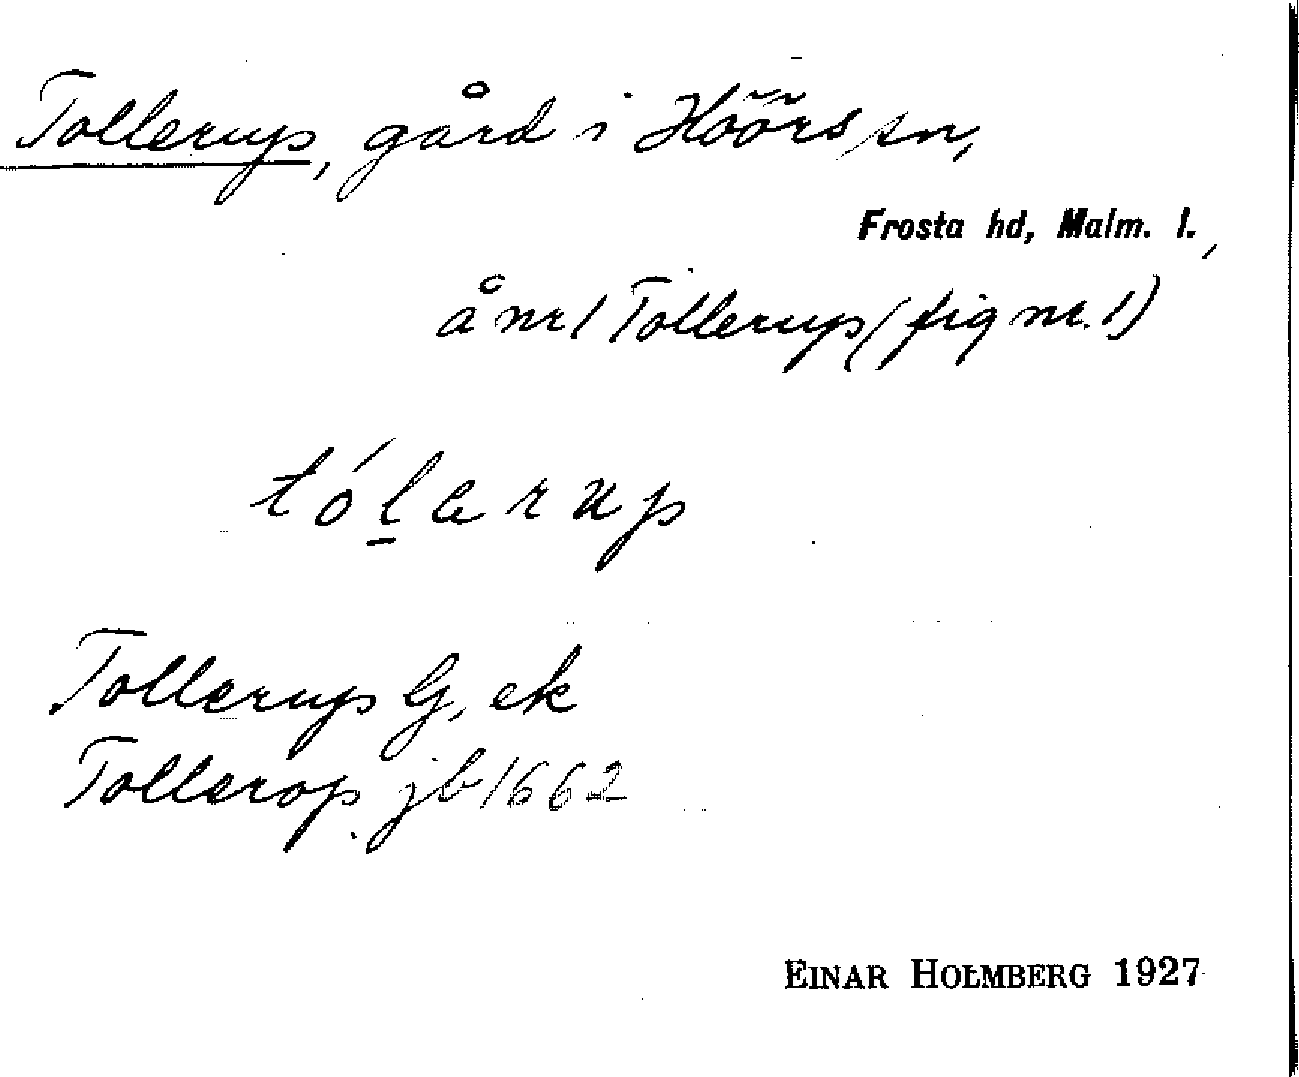 Tollerup, gård i Höörs sn,
Frosta hd, Malm. l.,
å nr 1 Tollerup (fig nr. 1)
tól̲arup
Tollerup G, ek
Tollerop jb 1662
EINAR HOLMBERG 1927